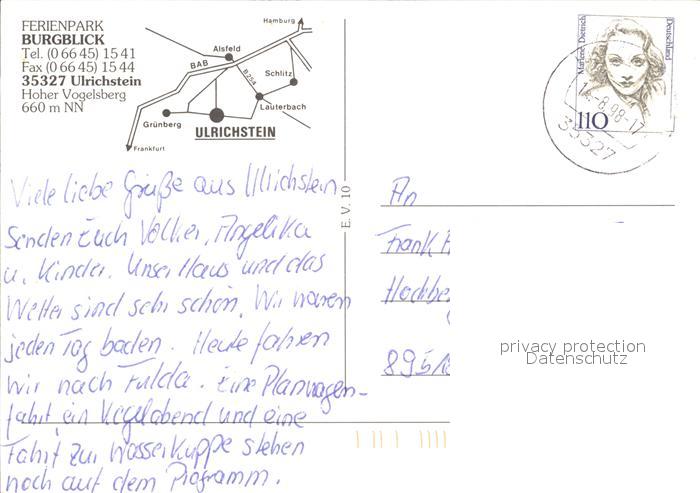 FERIENPARK
BURGBLICK
Tel. (0 66 45) 15 41
Fax (0 66 45) 15 44
35327 Ulrichstein
Hoher Vogelsberg
660 m NN
Hamburg
Alsfeld
BAB
B 254
Schlitz
Lauterbach
Grünberg
ULRICHSTEIN
Frankfurt
Marlene Dietrich
Deutschland
110
-8.98-17
35327
E. V. 10
Viele liebe Grüße aus Ullrichstein
senden Euch Volker, Angelika
u. Kinder. Unser Haus und das
Wetter sind sehr schön. Wir waren
jeden Tag baden. Heute fahren
wir nach Fulda. Eine Planwagen-
fahrt, ein Kegelabend und eine
Fahrt zur Wasserkuppe stehen
noch auf dem Programm.
An
Frank
Hochbe
895
privacy protection
Datenschutz